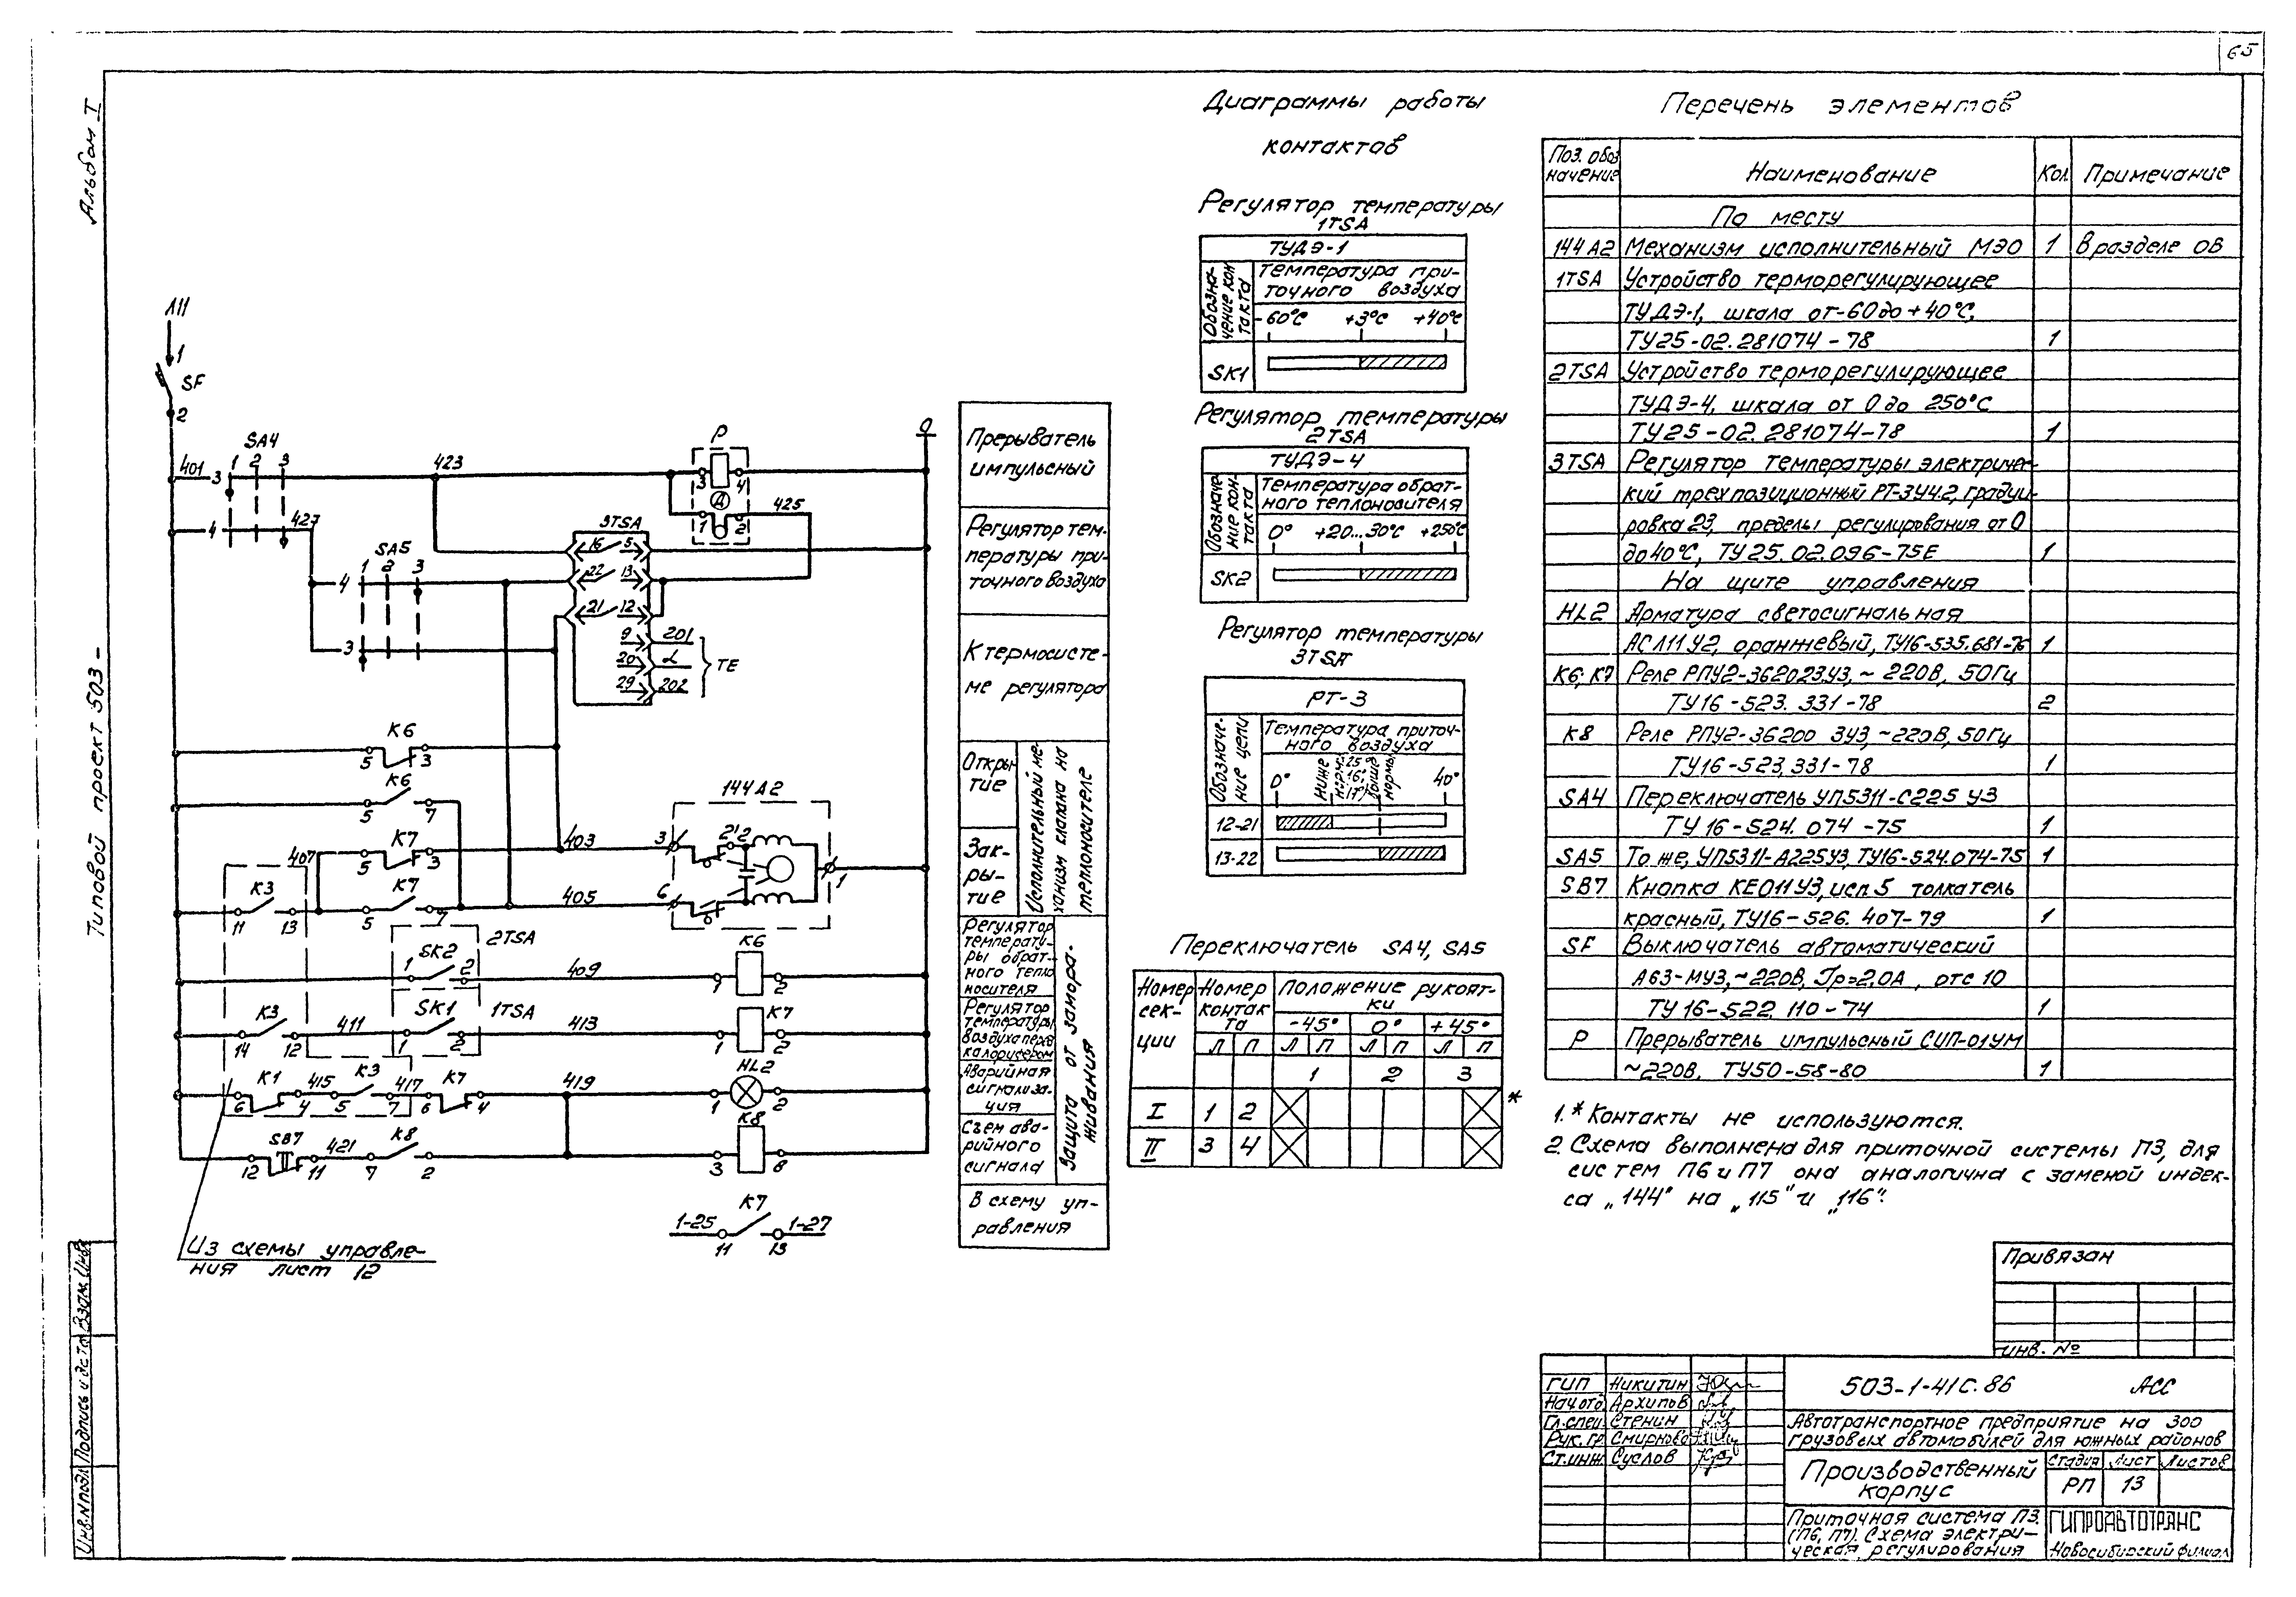 65
Альбом I
Типовой проект 503-
Л11
1
SF
2
401
3
SA4
1 2 3
423
P
0
3 4
Д
1 2
425
4
427
SA5
1 2 3
4
3
3TSA
16 5
22 13
21 12
9 201
20 L
29 202
TE
K6
5 3
K6
5 7
K7
5 3
403
407
K3
11 13
K7
5 7
405
144А2
3 2 2
6
1
SK2
1 2
2TSA
409
K6
1 2
K3
14 12
411
SK1
1 2
1TSA
413
K7
1 2
K1
6 4
415
K3
5 7
417
K7
6 4
419
HL2
1 2
SB7
12 11
421
K8
7 2
K8
3 8
Из схемы управле-
ния лист 12
1-25
K7
1-27
11 13
Прерыватель
импульсный
Регулятор тем-
пературы при-
точного воздуха
К термосисте-
ме регулятора
Откры-
тие
Зак-
ры-
тие
Исполнительный ме-
ханизм клапана на
теплоносителе
Регулятор
температу-
ры обрат-
ного тепло
носителя
Регулятор
температуры
воздуха перед
калорифером
Аварийная
сигнализа-
ция
Съем ава-
рийного
сигнала
Защита от замора-
живания
В схему уп-
равления
Диаграммы работы
контактов
Регулятор температуры
1TSA
ТУДЭ-1
Обозна-
чение кон
такта
Температура при-
точного воздуха
-60°С +3°С +40°С
SK1
Регулятор температуры
2TSA
ТУДЭ-4
Обозначе-
ние кон-
такта
Температура обрат-
ного теплоносителя
0° +20...30°С +250°С
SK2
Регулятор температуры
3TSA
РТ-3
Обозначе-
ние цепи
Температура приточ-
ного воздуха
0° Ниже нормы Выше нормы 40°
12-21
13-22
Переключатель SA4, SA5
Номер
сек-
ции
Номер
контак
та
Положение рукоят-
ки
-45° 0° +45°
Л П Л П Л П Л П
1 2 3
I 1 2 *
II 3 4
Перечень элементов
Поз. обоз
начение Наименование Кол. Примечание
По месту
144А2 Механизм исполнительный МЭО 1 В разделе ОВ
1TSA Устройство терморегулирующее
ТУДЭ-1, шкала от-60 до +40°С,
ТУ25-02.281074-78 1
2TSA Устройство терморегулирующее
ТУДЭ-4, шкала от 0 до 250°С
ТУ25-02.281074-78 1
3TSA Регулятор температуры электричес-
кий трехпозиционный РТ-3У4.2, градуи-
ровка 23, пределы регулирования от 0
до 40°С, ТУ25.02.096-75Е 1
На щите управления
HL2 Арматура светосигнальная
АСЛ11У2, оранжевый, ТУ16-535.681-76 1
K6; K7 Реле РПУ2-362023У3, ~ 220В, 50Гц
ТУ16-523.331-78 2
K8 Реле РПУ2-36200 3У3, ~220В, 50Гц
ТУ16-523,331-78 1
SA4 Переключатель УП5311-С225 У3
ТУ16-524.074-75 1
SA5 То же, УП5311-А225У3, ТУ16-524.074-75 1
SB7 Кнопка КЕ011У3, исп.5 толкатель
красный, ТУ16-526.407-79 1
SF Выключатель автоматический
А63-МУ3, ~220В, Iр=2,0А, отс 10
ТУ16-522.110-74 1
P Прерыватель импульсный СИП-01УМ
~220В, ТУ50-58-80 1
1.* Контакты не используются.
2. Схема выполнена для приточной системы П3, для
систем П6 и П7 она аналогична с заменой индек-
са „144" на „115" и „116".
Привязан
инв. №
ГИП Никитин
Нач.отд Архипов
Гл.спец Стенин
Рук.гр Смирнова
Ст.инж Суслов
503-1-41С.86 АСС
Автотранспортное предприятие на 300
грузовых автомобилей для южных районов
Производственный
корпус
Стадия Лист Листов
РП 13
Приточная система П3
(П6, П7). Схема электри-
ческая регулирования
ГИПРОАВТОТРАНС
Новосибирский филиал
Инв.№подл. Подпись и дата Взам. инв.